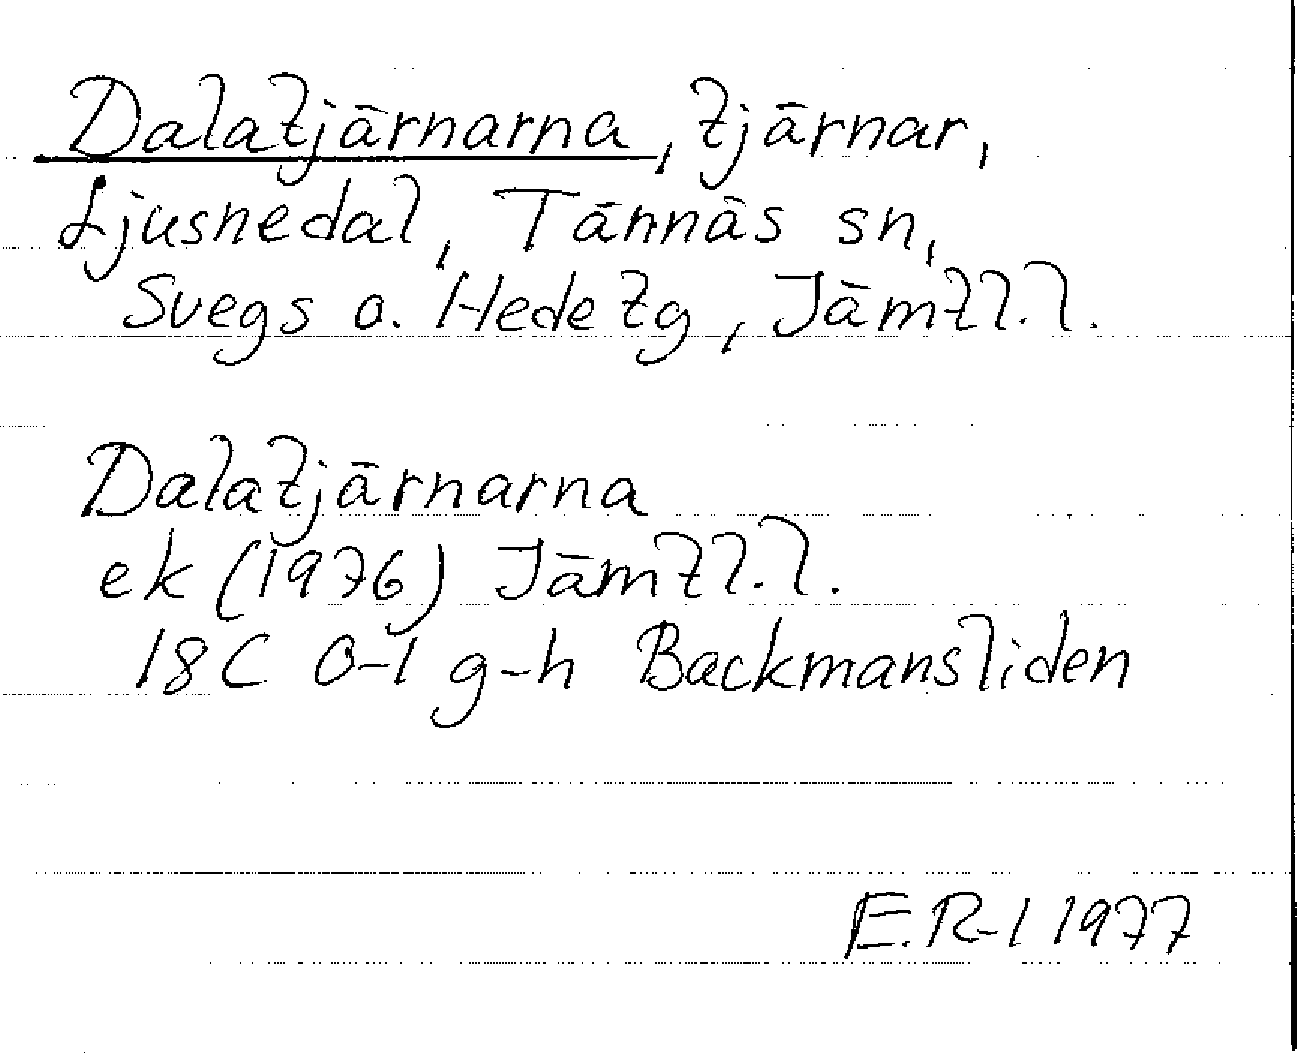 Dalatjärnarna, tjärnar,
Ljusnedal, Tännäs sn,
Svegs o. Hede tg, Jämtl.l.
Dalatjärnarna
ek (1976) Jämtl.l.
18C 0-1 g-h Backmansliden
E.R-l 1977